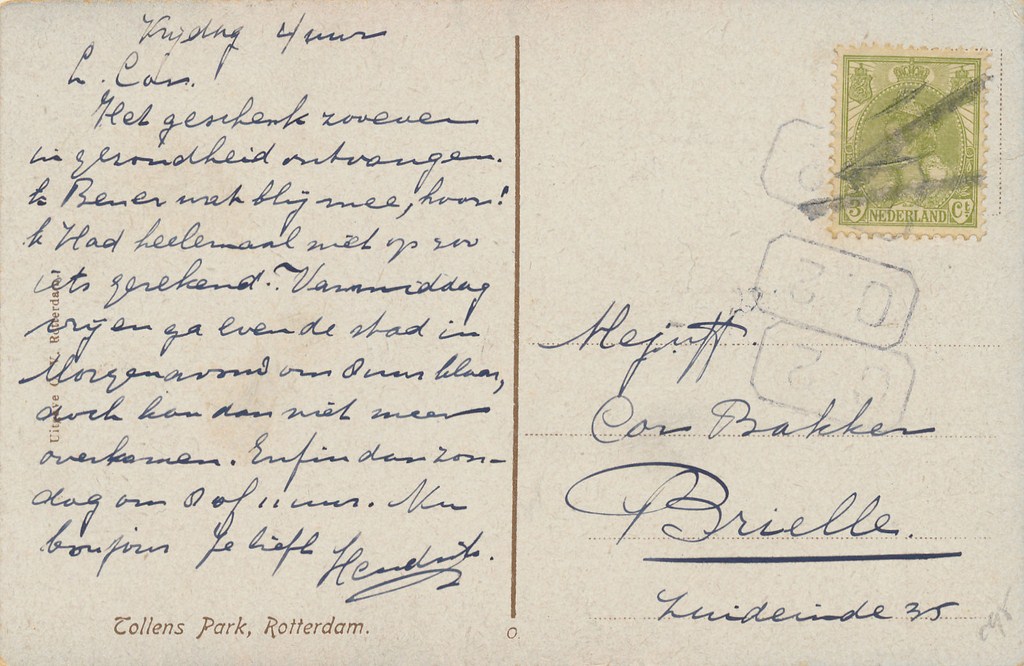 Vrijdag 4 uur
L. Cor.
Het geschenk zooeven
in gezondheid ontvangen.
k Ben er wat blij mee, hoor!
k Had heelemaal niet op zoo
iets gerekend. Vanmiddag
vrij en ga even de stad in
Morgenavond om 8 uur klaar,
doch kan dan niet meer
overkomen. Enfin dan Zon-
dag om 8 of 11 uur. Nu
bonjour Je liefh
Hendrik.
Uitgave Rotterdam
Tollens Park, Rotterdam.
O.
3 NEDERLAND Ct
Mejuff.
Cor Bakker
Brielle.
Zuideinde 35